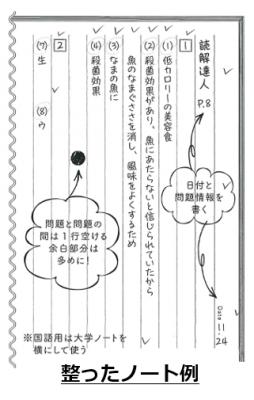 読解達人 P.8
Date 11・24
日付と
問題情報を
書く
1
(1) 低カロリーの美容食
(2) 殺菌効果があり、魚にあたらないと信じられていたから
魚のなまぐささを消し、風味をよくするため
(3) なまの魚に
(4) 殺菌効果
2
(7) 生 (8) ウ
問題と問題の
間は1行空ける
余白部分は
多めに!
※国語用は大学ノートを
横にして使う
整ったノート例